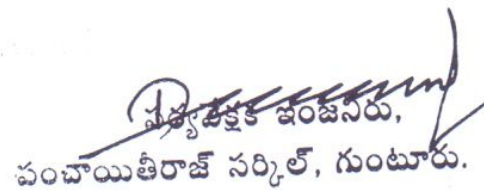 పర్యవేక్షక ఇంజనీరు,
పంచాయితీరాజ్ సర్కిల్, గుంటూరు.